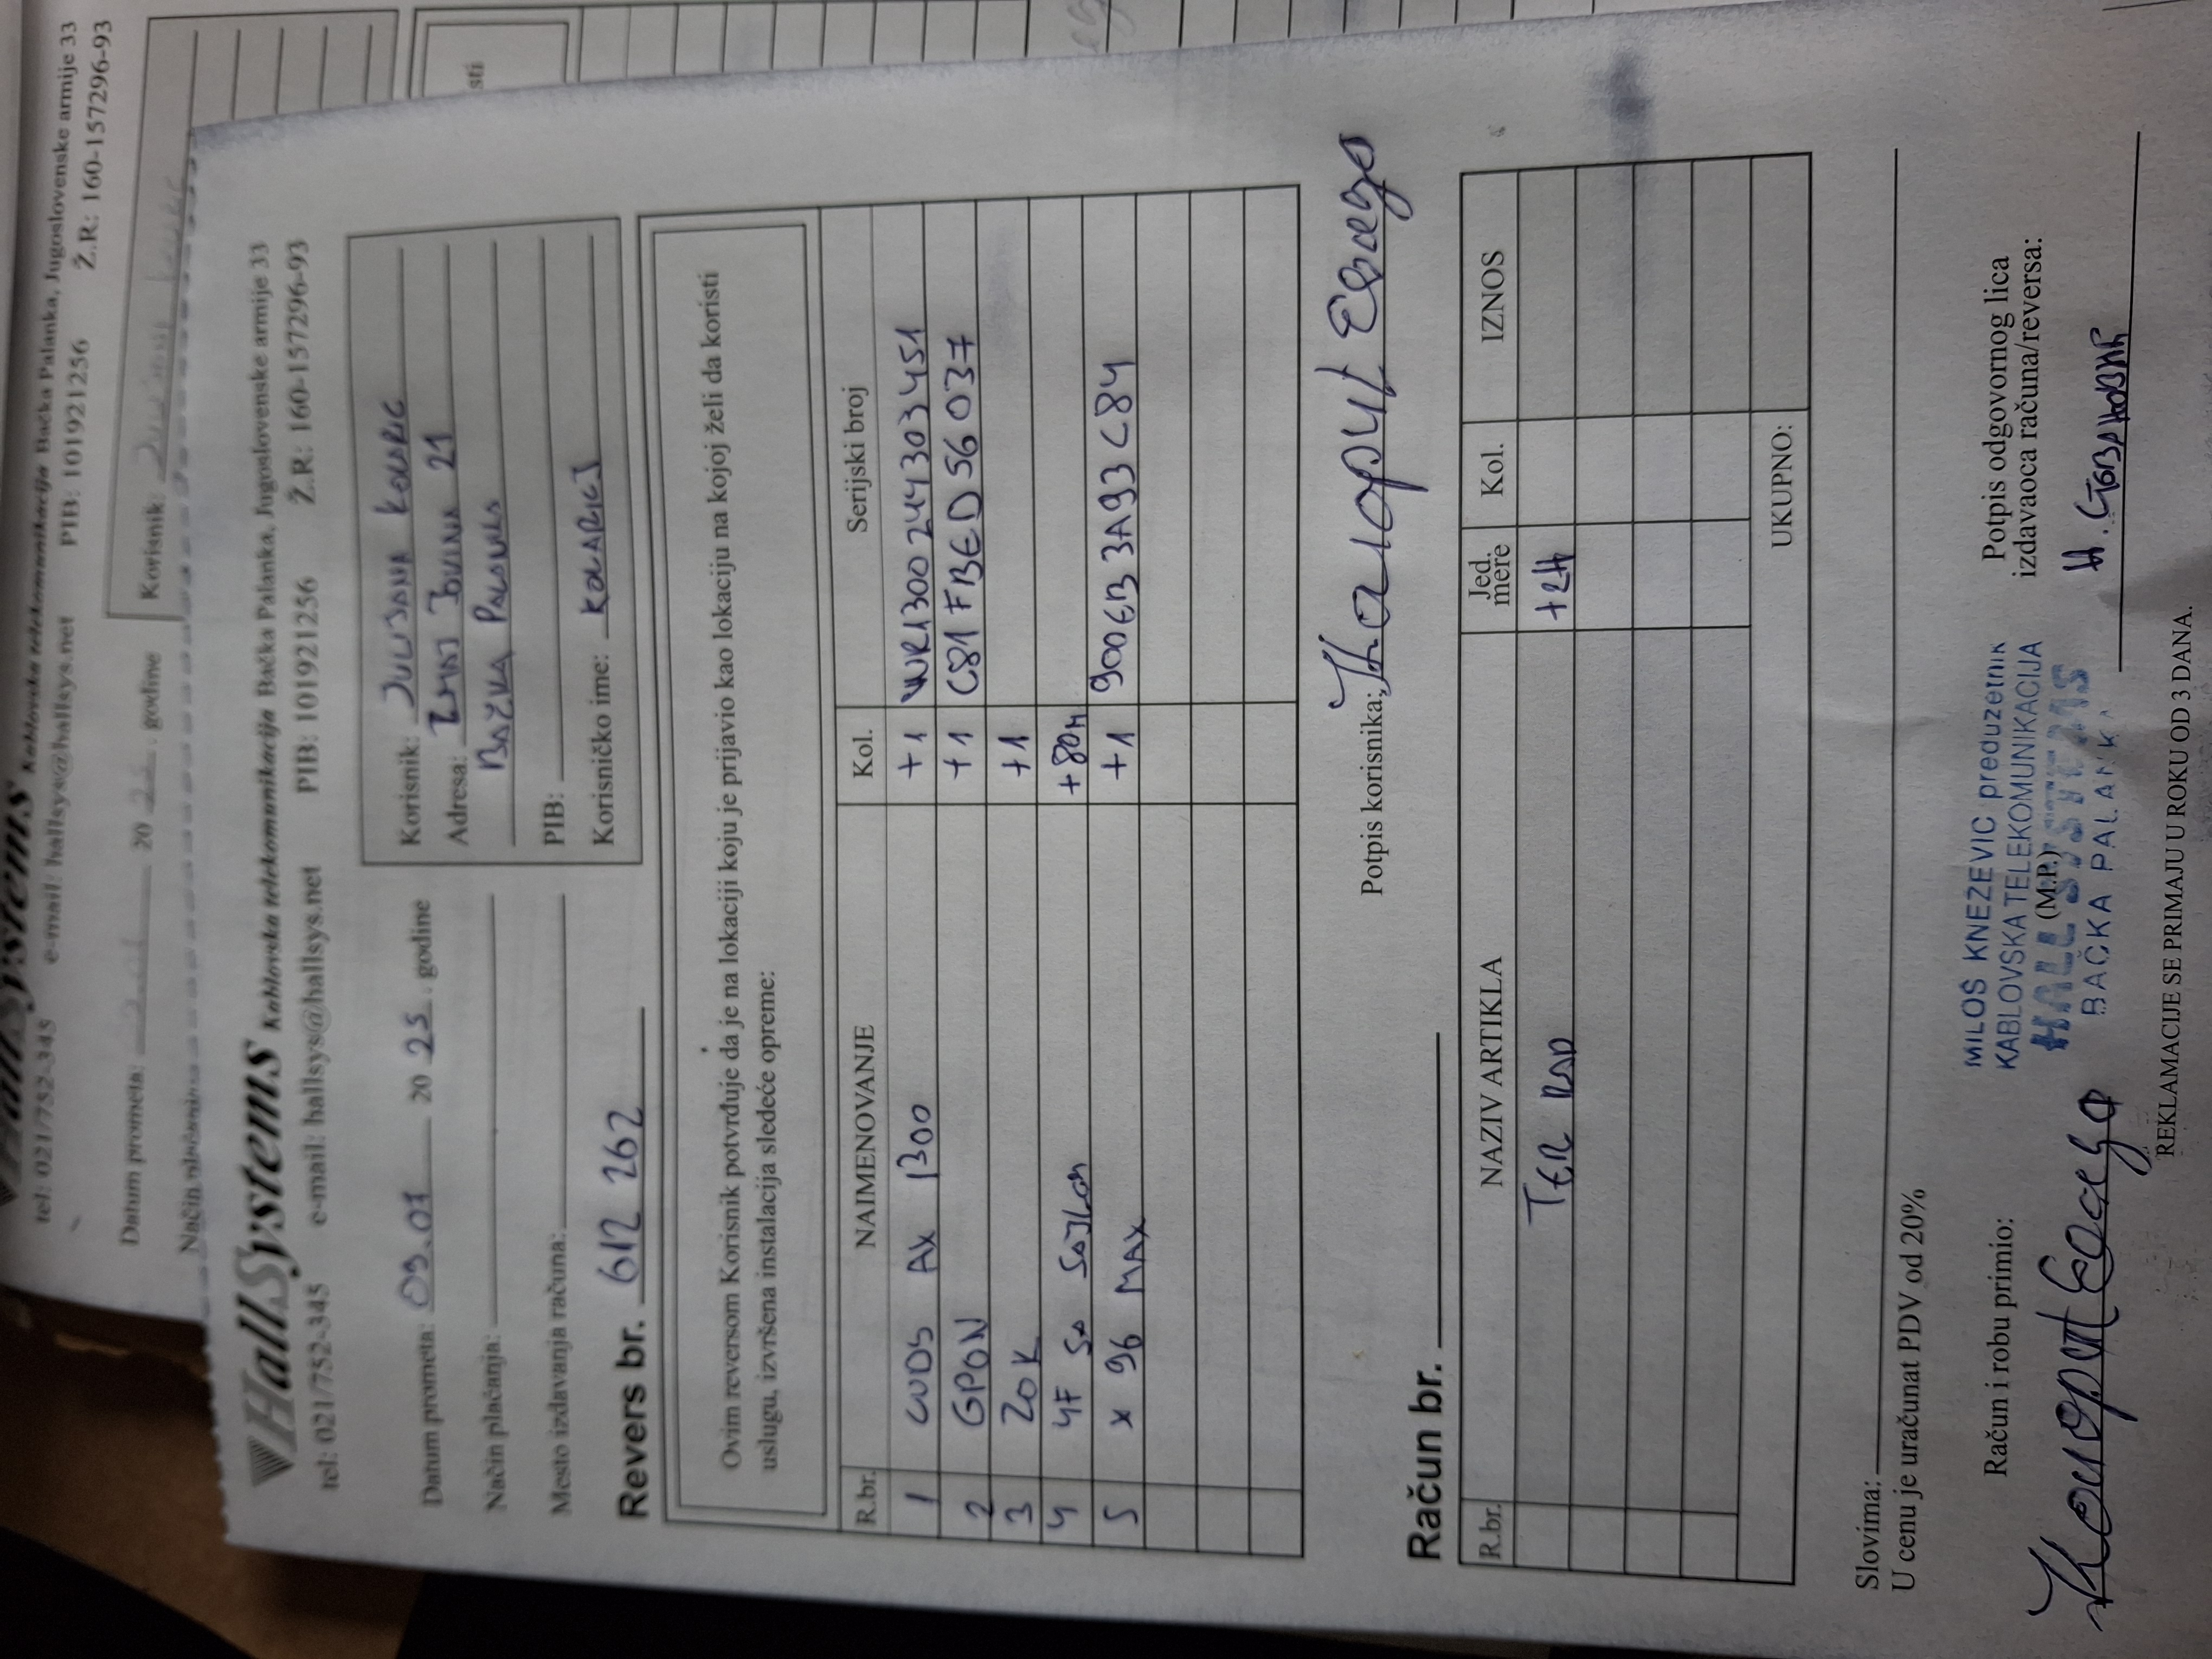 HallSystems Kablovska telekomunikacija Bačka Palanka, Jugoslovenske armije 33
tel: 021/752-345 e-mail: hallsys@hallsys.net PIB: 101921256 Ž.R.: 160-157296-93
Datum prometa: 20 godine
Korisnik:
Način plaćanja
sti
HallSystems Kablovska telekomunikacija Bačka Palanka, Jugoslovenske armije 33
tel: 021/752-345 e-mail: hallsys@hallsys.net PIB: 101921256 Ž.R.: 160-157296-93
Datum prometa: 09.01 20 25. godine
Način plaćanja:
Mesto izdavanja računa:
Korisnik: JULIJANA KOLARIĆ
Adresa: ZMAJ JOVINA 21
BAČKA PALANKA
PIB:
Korisničko ime: KOLARICJ
Revers br. 612 262
Ovim reversom Korisnik potvrđuje da je na lokaciji koju je prijavio kao lokaciju na kojoj želi da koristi
uslugu, izvršena instalacija sledeće opreme:
R.br. NAIMENOVANJE Kol. Serijski broj
1 CUDS AX 1300 +1 WR1300244303451
2 GPON +1 C81FBED56037
3 ZOK +1
4 4F SA SAJLOM +80m
5 X 96 MAX +1 9006EB3A93C84
Potpis korisnika:
Račun br.
R.br. NAZIV ARTIKLA Jed. mere Kol. IZNOS
TER RAD +2H
UKUPNO:
Slovima:
U cenu je uračunat PDV od 20%
Račun i robu primio:
MILOŠ KNEZEVIC preduzetnik
KABLOVSKA TELEKOMUNIKACIJA
(M.P.)
HALLSYSTEMS
BAČKA PALANKA
Potpis odgovornog lica
izdavaoca računa/reversa:
REKLAMACIJE SE PRIMAJU U ROKU OD 3 DANA.